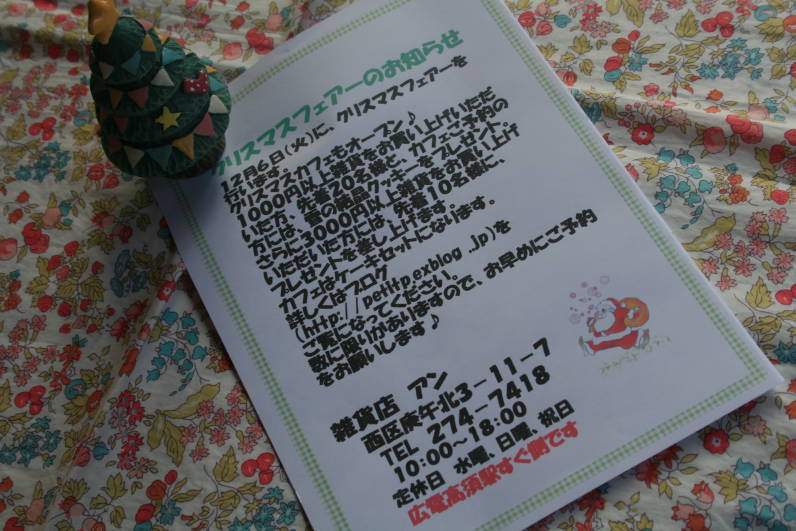 クリスマスフェアーのお知らせ
12月6日(火)に、クリスマスフェアーを
行います。
クリスマスカフェもオープン♪
1000円以上雑貨をお買い上げいただ
いた方、先着20名様と、カフェご予約の
方には、雪の結晶クッキーをプレゼント。
さらに3000円以上雑貨をお買い上げ
いただいた方には、先着10名様に、
プレゼントを差し上げます。
カフェはケーキセットになります。
詳しくはブログ
(http://petitp.exblog.jp)を
ご覧になってください。
数に限りがありますので、お早めにご予約
をお願いします♪
雑貨店 アン
西区庚午北3－11－7
TEL 274－7418
10:00～18:00
定休日 水曜、日曜、祝日
広電高須駅すぐ側です